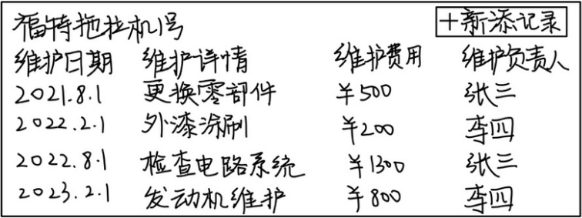 福特拖拉机1号 +新添记录
维护日期 维护详情 维护费用 维护负责人
2021.8.1 更换零部件 ¥500 张三
2022.2.1 外漆涂刷 ¥200 李四
2022.8.1 检查电路系统 ¥1300 张三
2023.2.1 发动机维护 ¥800 李四